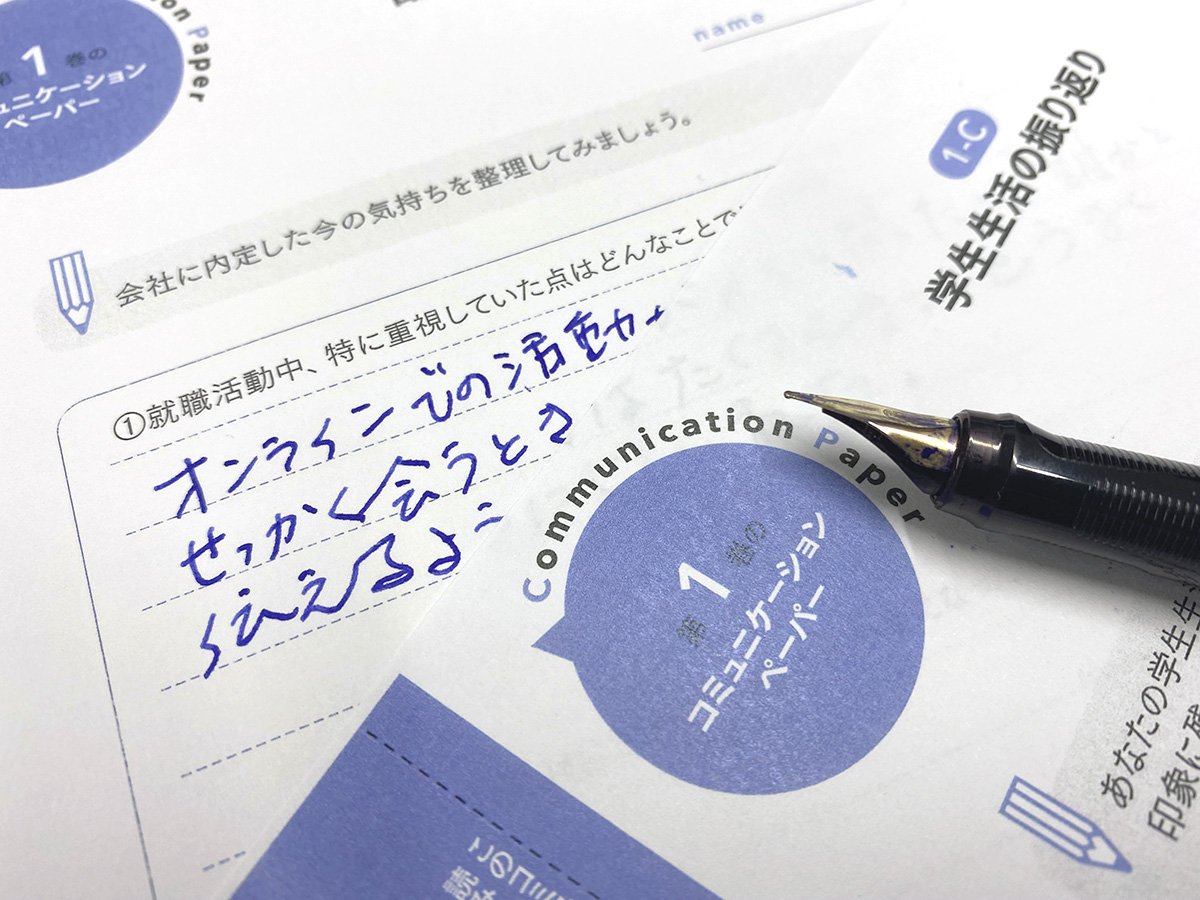 on Paper
第1巻の
ュニケーション
ペーパー
name
会社に内定した今の気持ちを整理してみましょう。
①就職活動中、特に重視していた点はどんなことで
オンラインでの活動
せっかく会うとき
伝えるよ
1-C
学生生活の振り返り
Communication Paper
第1巻の
コミュニケーション
ペーパー
あなたの学生生
印象に残
このコミ
読み